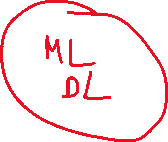 ML
DL